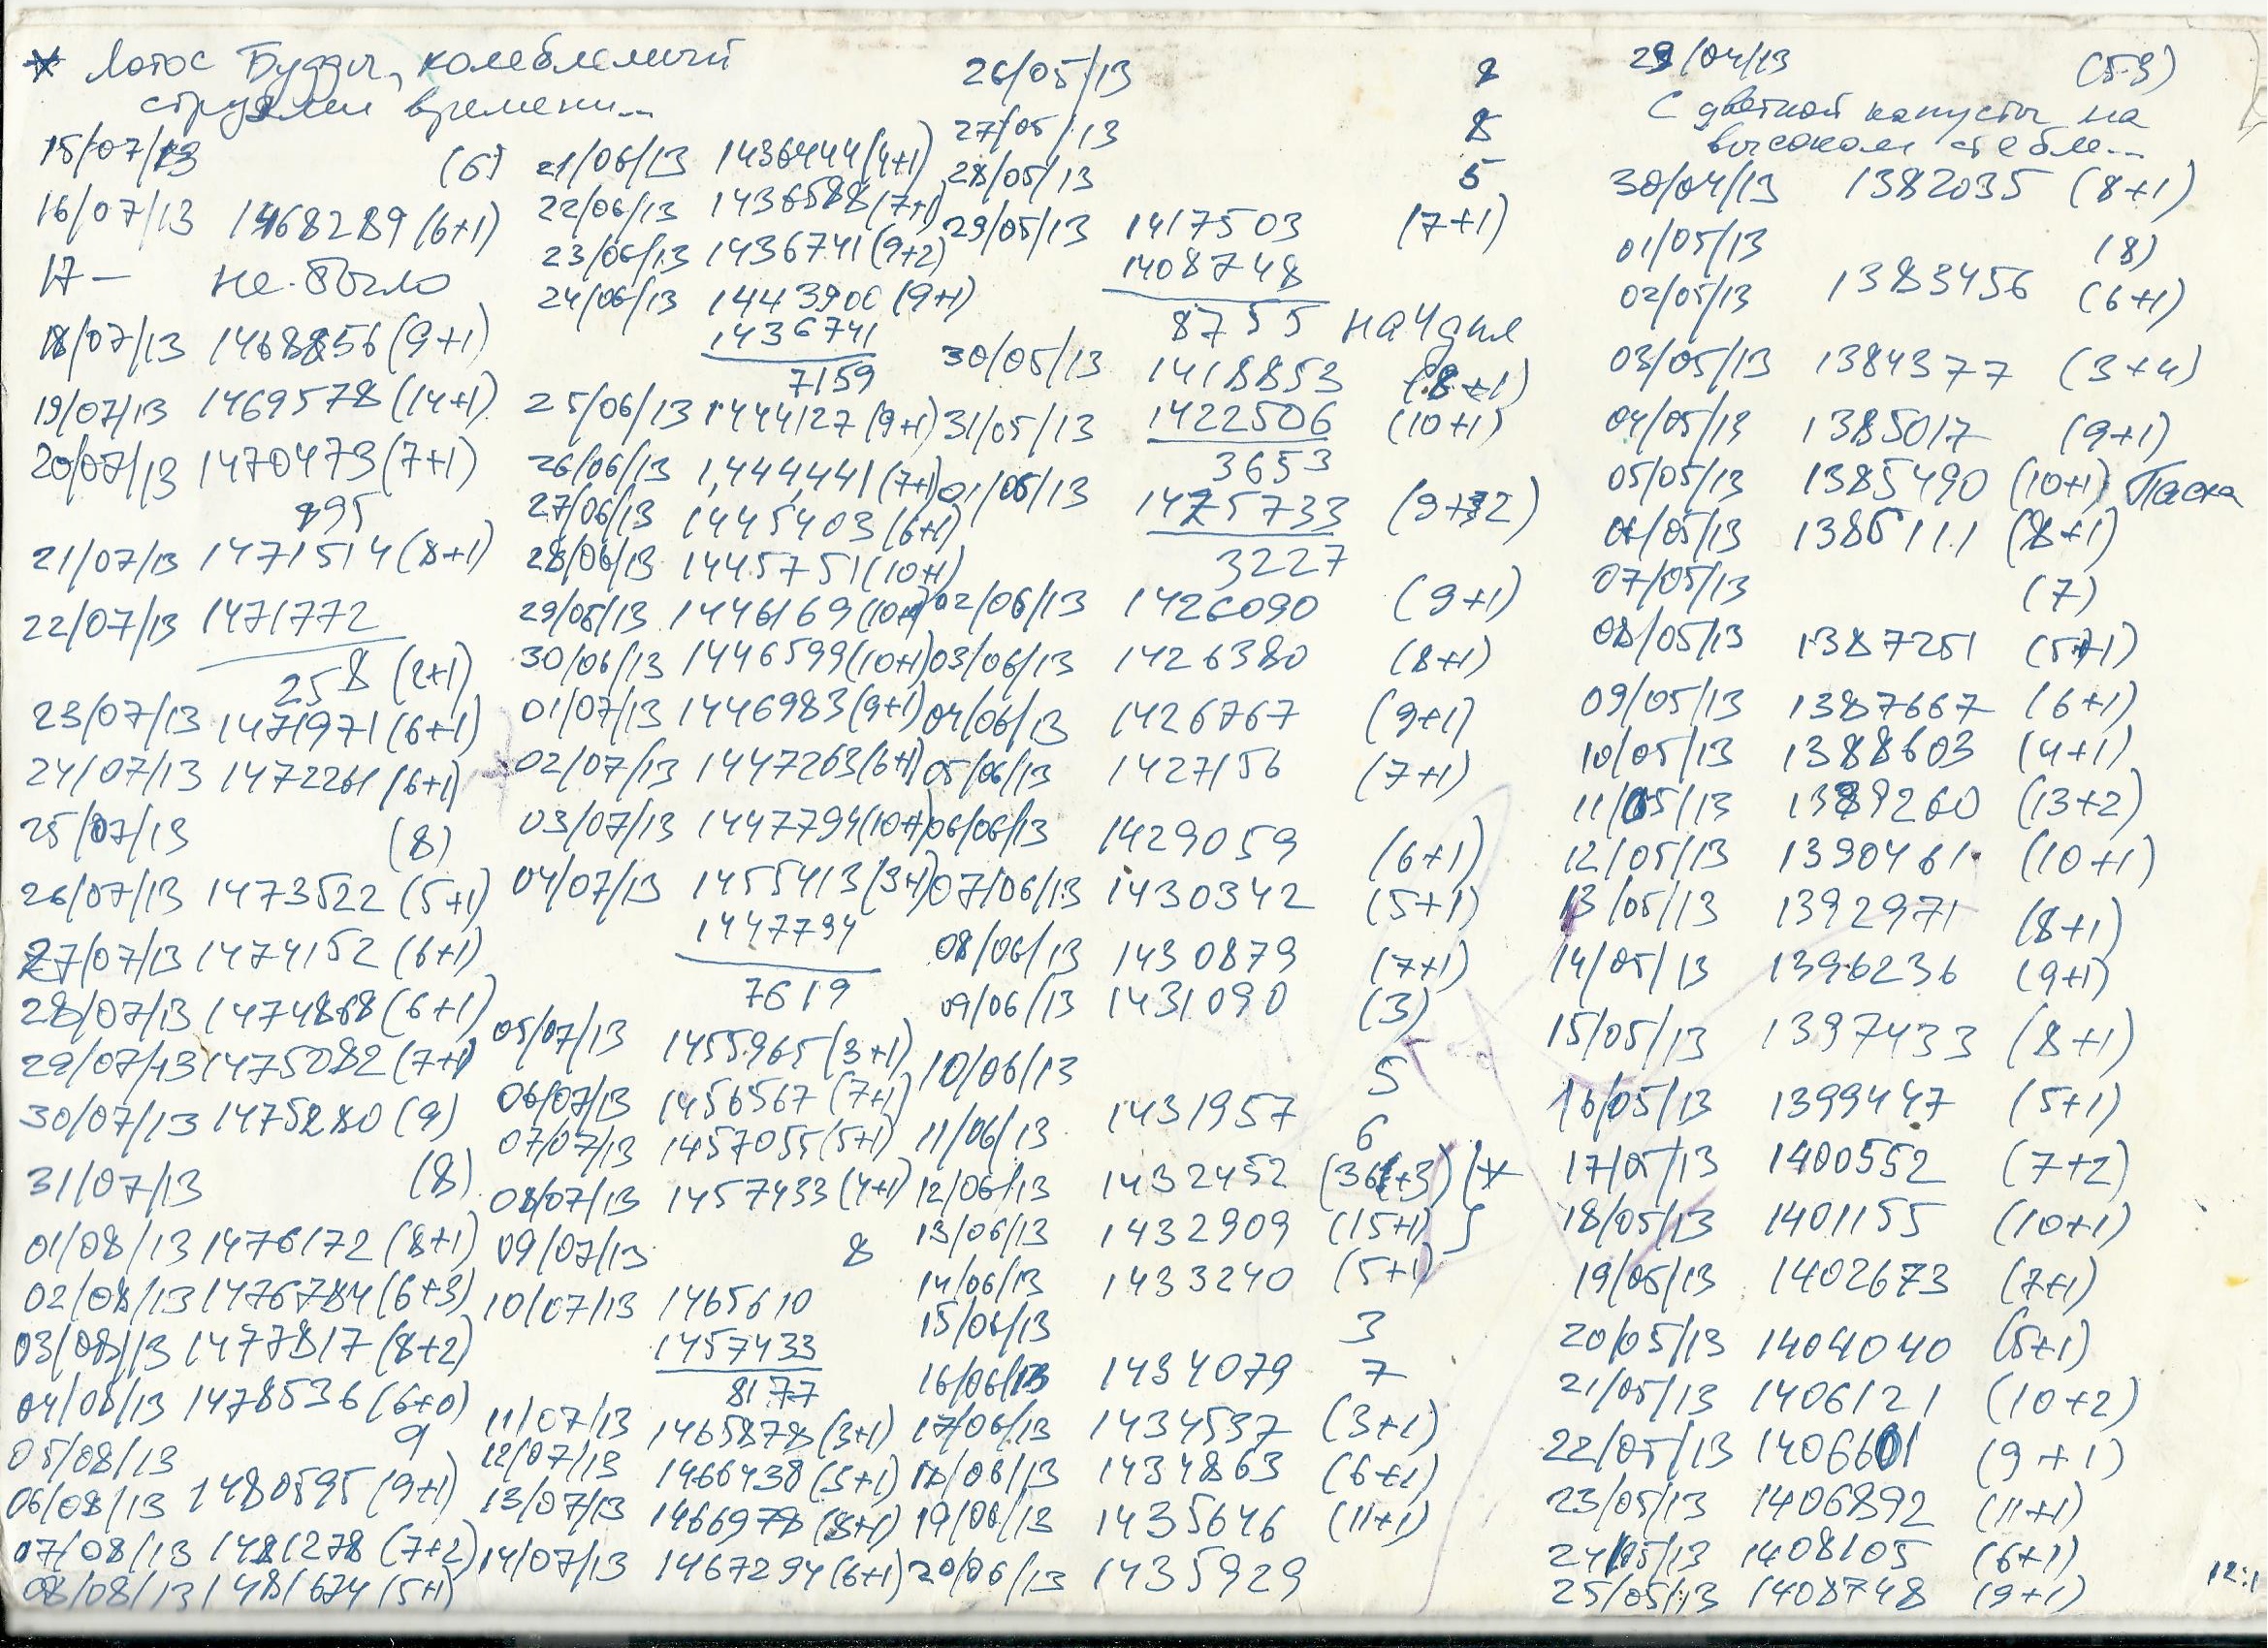 * Лотос Будды, колеблемый
струями времени...
15/07/13 (6)
16/07/13 1468289 (6+1)
17 — не было
18/07/13 1468856 (9+1)
19/07/13 1469578 (14+1)
20/07/13 1470473 (7+1)
895
21/07/13 1471514 (8+1)
22/07/13 1471772
258 (2+1)
23/07/13 1471971 (6+1)
24/07/13 1472261 (6+1)
25/07/13 (8)
26/07/13 1473522 (5+1)
27/07/13 1474152 (6+1)
28/07/13 1474868 (6+1)
29/07/13 1475082 (7+1)
30/07/13 1475280 (9)
31/07/13 (8)
01/08/13 1476172 (8+1)
02/08/13 1476784 (6+3)
03/08/13 1477817 (8+2)
04/08/13 1478536 (6+0)
05/08/13 9
06/08/13 1480595 (9+1)
07/08/13 1481278 (7+2)
08/08/13 1481674 (5+1)
21/06/13 1436444 (4+1)
22/06/13 1436588 (7+1)
23/06/13 1436741 (9+2)
24/06/13 1443900 (9+1)
1436741
7159
25/06/13 1444127 (9+1)
26/06/13 1,444,441 (7+1)
27/06/13 1445403 (6+1)
28/06/13 1445751 (10+1)
29/06/13 1446169 (10+1)
30/06/13 1446599 (10+1)
01/07/13 1446983 (9+1)
02/07/13 1447263 (6+1)
03/07/13 1447794 (10+1)
04/07/13 1455413 (3+1)
1447794
7619
05/07/13 1455965 (3+1)
06/07/13 1456567 (7+1)
07/07/13 1457055 (5+1)
08/07/13 1457433 (4+1)
09/07/13 8
10/07/13 1465610
1457433
8177
11/07/13 1465878 (3+1)
12/07/13 1466438 (5+1)
13/07/13 1466978 (8+1)
14/07/13 1467294 (6+1)
26/05/13 8
27/05/13 8
28/05/13 5
29/05/13 1417503 (7+1)
1408748
8755 на 4 дня
30/05/13 1418853 (8+1)
31/05/13 1422506 (10+1)
3653
01/06/13 1425733 (9+2)
3227
02/06/13 1426090 (9+1)
03/06/13 1426380 (8+1)
04/06/13 1426767 (9+1)
05/06/13 1427156 (7+1)
06/06/13 1429059 (6+1)
07/06/13 1430342 (5+1)
08/06/13 1430879 (7+1)
09/06/13 1431090 (3)
10/06/13 5
11/06/13 1431957 6
12/06/13 1432452 (36+3) *
13/06/13 1432909 (15+1)
14/06/13 1433240 (5+1)
15/06/13 3
16/06/13 1434079 7
17/06/13 1434537 (3+1)
18/06/13 1434863 (6+1)
19/06/13 1435646 (11+1)
20/06/13 1435929
29/04/13 (5-3)
С цветной капусты на
высоком стебле...
30/04/13 1382035 (8+1)
01/05/13 (8)
02/05/13 1383456 (6+1)
03/05/13 1384377 (3+4)
04/05/13 1385017 (9+1)
05/05/13 1385490 (10+1) Пасха
06/05/13 1386111 (8+1)
07/05/13 (7)
08/05/13 1387251 (5+1)
09/05/13 1387667 (6+1)
10/05/13 1388603 (4+1)
11/05/13 1389260 (13+2)
12/05/13 1390461 (10+1)
13/05/13 1392971 (8+1)
14/05/13 1396236 (9+1)
15/05/13 1397433 (8+1)
16/05/13 1399447 (5+1)
17/05/13 1400552 (7+2)
18/05/13 1401155 (10+1)
19/05/13 1402673 (7+1)
20/05/13 1404040 (5+1)
21/05/13 1406121 (10+2)
22/05/13 1406601 (9+1)
23/05/13 1406892 (11+1)
24/05/13 1408105 (6+1)
25/05/13 1408748 (9+1)